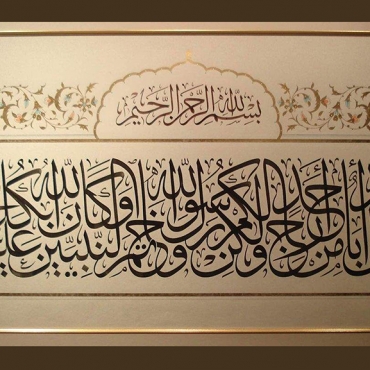 بسم الله الرحمن الرحيم
أبا أحد من رجالكم ولكن رسول الله وخاتم النبيين وكان الله بكل